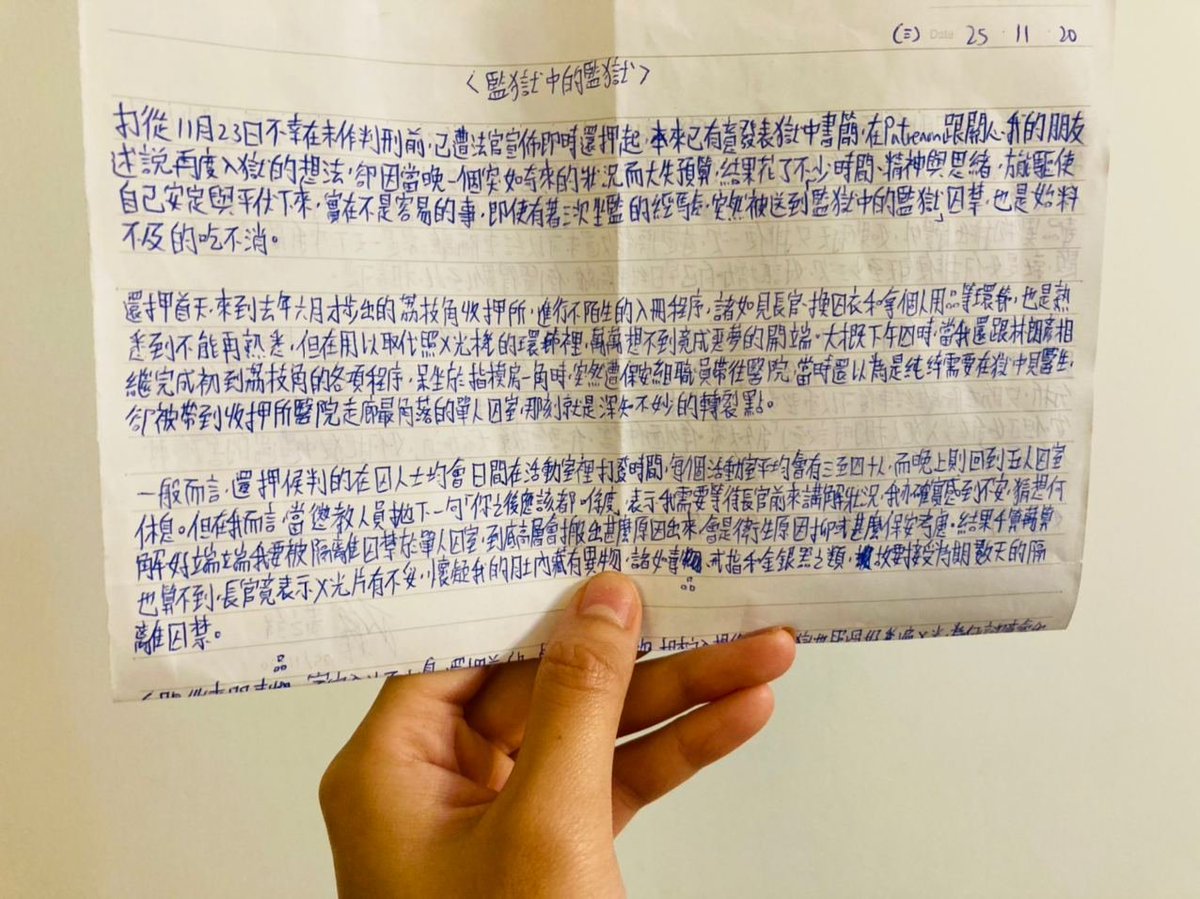 (三) Date 25 · 11 · 20
〈監獄中的監獄〉
打從11月23日不幸在未作判刑前,已遭法官宣佈即時還押起,本來已有意發表獄中書簡,在Patreon跟關心我的朋友
述說再度入獄的想法,卻因當晚一個突如奇來的狀況而大失預算,結果花了不少時間、精神與思緒,方能驅使
自己安定與平伏下來,實在不是容易的事,即使有著三次坐監的經驗,突然被送到「監獄中的監獄」囚禁,也是始料
不及的吃不消。
還押首天,來到去年六月才步出的荔枝角收押所,進行不陌生的入冊程序,諸如見長官、換囚衣和拿個人用品等環節,也是熟
悉到不能再熟悉,但在用以取代照X光機的環節裡,萬萬想不到竟成惡夢的開端。大概下午四時,當我還跟林朗彥相
繼完成初到荔枝角的各項程序,呆坐於指模房一角時,突然遭保安組職員帶往醫院,當時還以為是純綷需要在獄中見醫生,
卻被帶到收押所醫院走廊最角落的單人囚室,那刻就是深知不妙的轉裂點。
一般而言,還押候判的在囚人士均會日間在活動室裡打發時間,每個活動室平均會有三至四十人,而晚上則回到五人囚室
休息。但在我而言,當懲教人員拋下一句「你之後應該都喺度」,表示我需要等待長官前來講解狀況,我亦確實感到不安,猜想何
解好端端我要被隔離囚禁於單人囚室,到底高層會搬出甚麼原因出來,會是衛生原因抑或甚麼保安考慮。結果千算萬算
也算不到,長官竟表示X光片有不妥,懷疑我的肚內藏有異物,諸如毒品、戒指和金銀器之類,故要接受為期數天的隔
離囚禁。